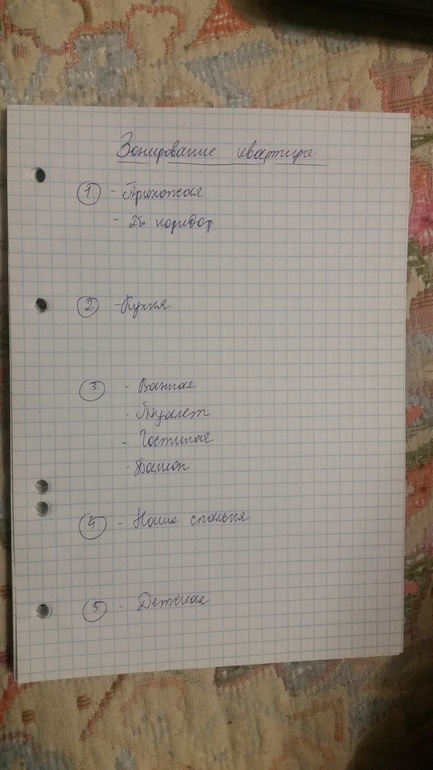 Зонирование квартиры
① - Прихожая
- 2й коридор
② - Кухня
③ - Ванная
- Туалет
- Гостиная
- Балкон
④ - Наша спальня
⑤ - Детская